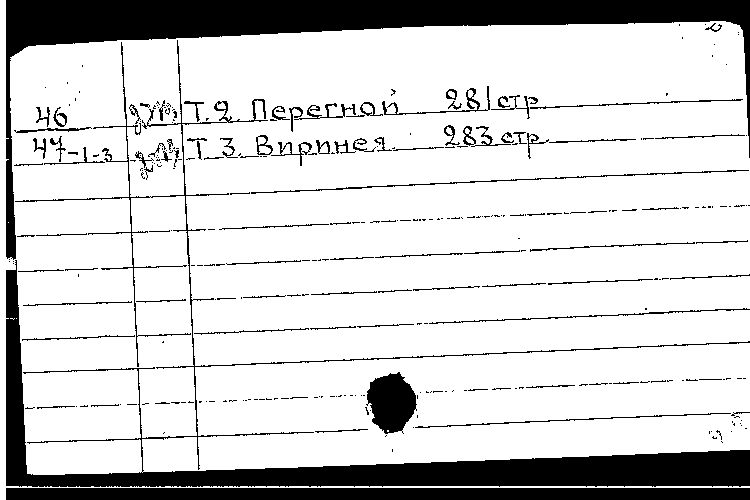 46 Т.2. Перегной 281 стр
47-1-3 Т 3. Виринея. 283 стр